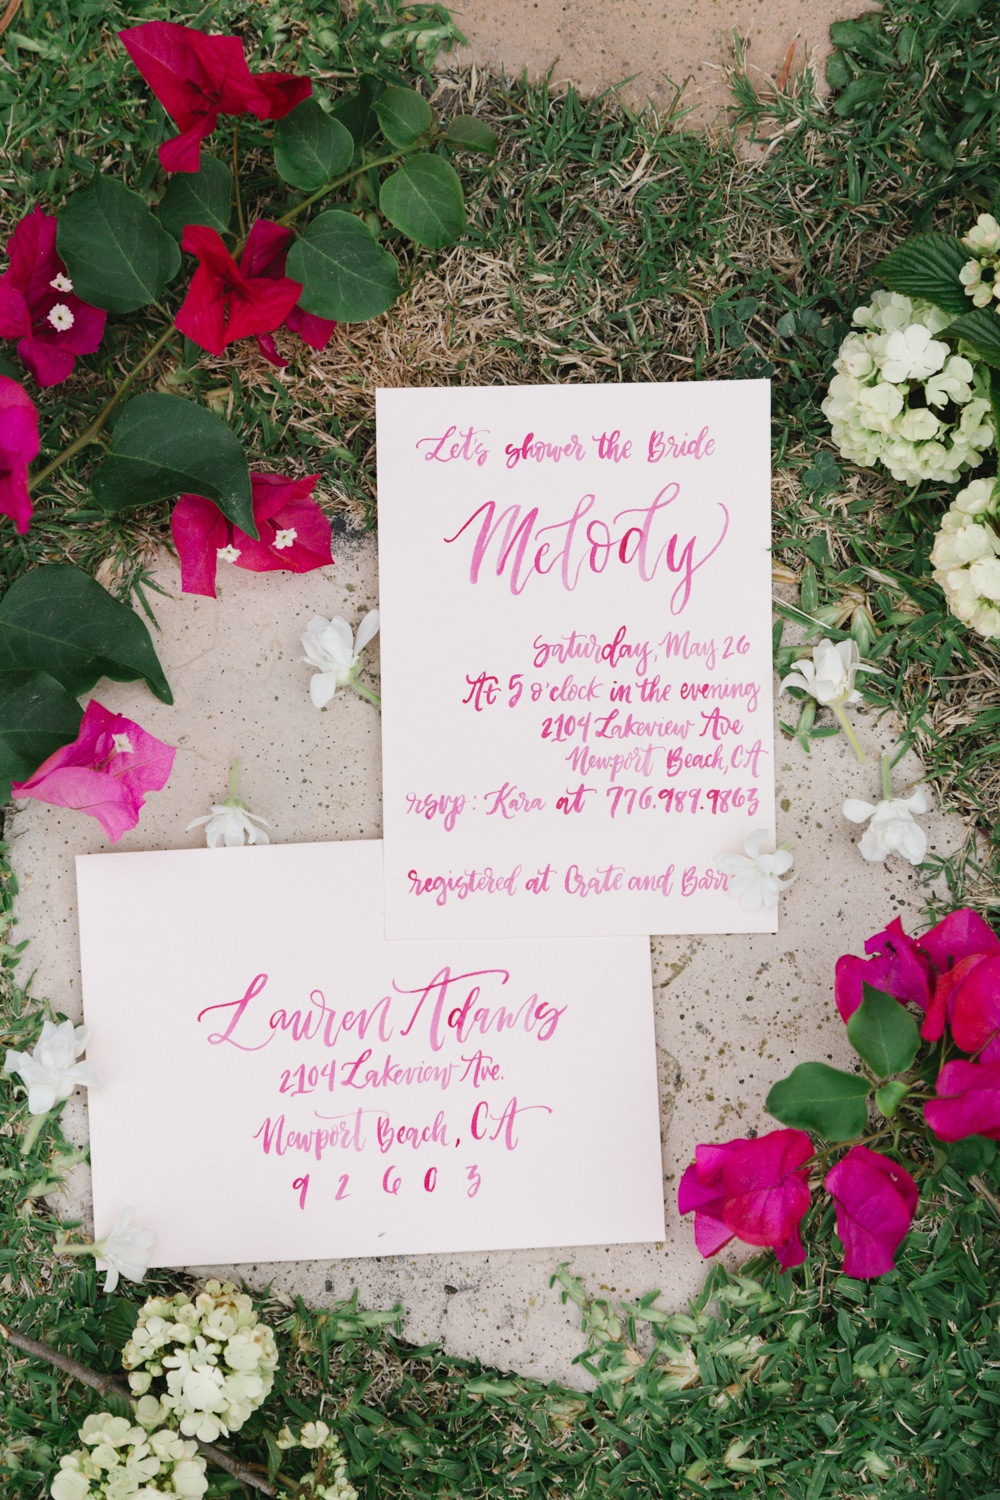 Let's shower the Bride
Melody
Saturday, May 26
At 5 o'clock in the evening
2104 Lakeview Ave
Newport Beach, CA
rsvp: Kara at 776.989.9863
registered at Crate and Barr
Lauren Adams
2104 Lakeview Ave.
Newport Beach, CA
92603